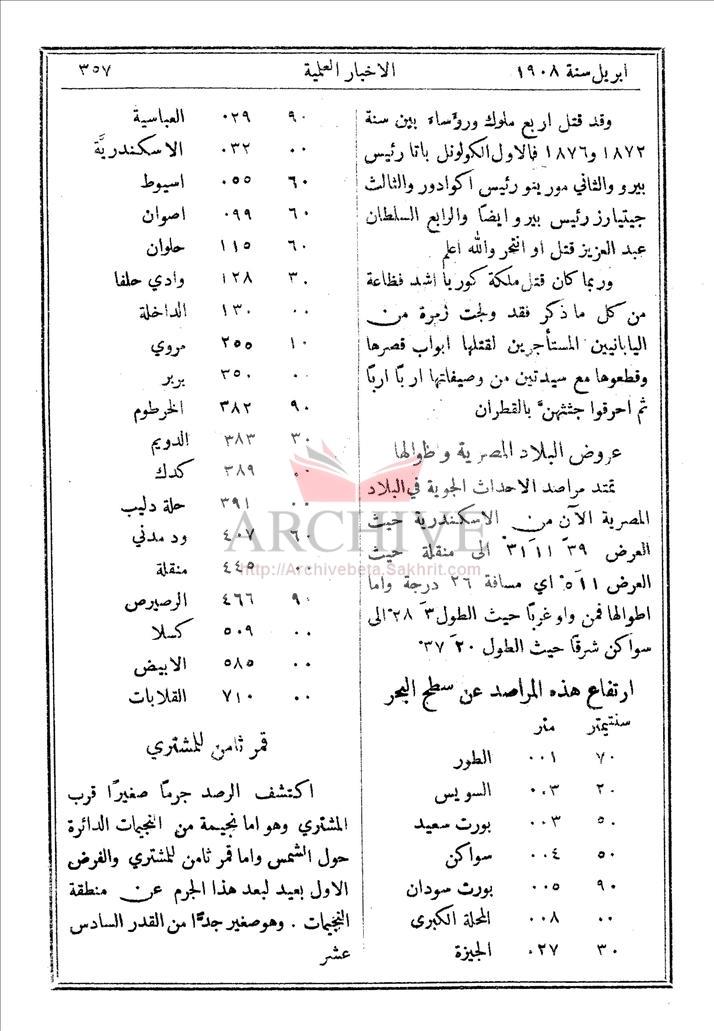 ابريل سنة ١٩٠٨
الاخبار العلمية
٣٥٧
وقد قتل اربع ملوك ورؤساء بين سنة
١٨٧٢ و١٨٧٦ فالاول الكولونل باتا رئيس
بيرو والثاني مورينو رئيس اكوادور والثالث
جيتيارز رئيس بيرو ايضاً والرابع السلطان
عبد العزيز قتل او انتحر والله اعلم
وربما كان قتل ملكة كوريا اشد فظاعة
من كل ما ذكر فقد ولجت زمرة من
اليابانيين المستأجرين لقتلها ابواب قصرها
وقطعوها مع سيدتين من وصيفاتها ارباً ارباً
ثم احرقوا جثثهنَّ بالقطران
عروض البلاد المصرية وطولها
تمتد مراصد الاحداث الجوية في البلاد
المصرية الآن من الاسكندرية حيث
العرض ٣٩ ١١ ٣١ الى منقلة حيث
العرض ١١ ٥ اي مسافة ٢٦ درجة واما
اطوالها فمن واو غرباً حيث الطول ٣ ٢٨ الى
سواكن شرقاً حيث الطول ٢٠ ٣٧
ارتفاع هذه المراصد عن سطح البحر
متر سنتيمتر
الطور ٠٠١ ٧٠
السويس ٠٠٣ ٢٠
بورت سعيد ٠٠٣ ٥٠
سواكن ٠٠٤ ٥٠
بورت سودان ٠٠٥ ٩٠
المحلة الكبرى ٠٠٨ ٠٠
الجيزة ٠٢٧ ٣٠
العباسية ٠٢٩ ٩٠
الاسكندريَّة ٠٣٢ ٠٠
اسيوط ٠٥٥ ٦٠
اصوان ٠٩٩ ٦٠
حلوان ١١٥ ٦٠
وادي حلفا ١٢٨ ٣٠
الداخلة ١٣٠ ٠٠
مروي ٢٥٥ ١٠
بربر ٣٥٠ ٠٠
الخرطوم ٣٨٢ ٩٠
الدويم ٣٨٣ ٣٠
كدك ٣٨٩ ٠٠
حلة دليب ٣٩١ ٠٠
ود مدني ٤٠٧ ٦٠
منقلة ٤٤٥ ٠٠
الرصيرص ٤٦٦ ٩٠
كسلا ٥٠٩ ٠٠
الابيض ٥٨٥ ٠٠
القلابات ٧١٠ ٠٠
قمر ثامن للمشتري
اكتشف الرصد جرماً صغيراً قرب
المشتري وهو اما نجيمة من النجيمات الدائرة
حول الشمس واما قمر ثامن للمشتري والفرض
الاول بعيد لبعد هذا الجرم عن منطقة
النجيمات . وهو صغير جدًّا من القدر السادس
عشر
ARCHIVE
http://Archivebeta.Sakhrit.com